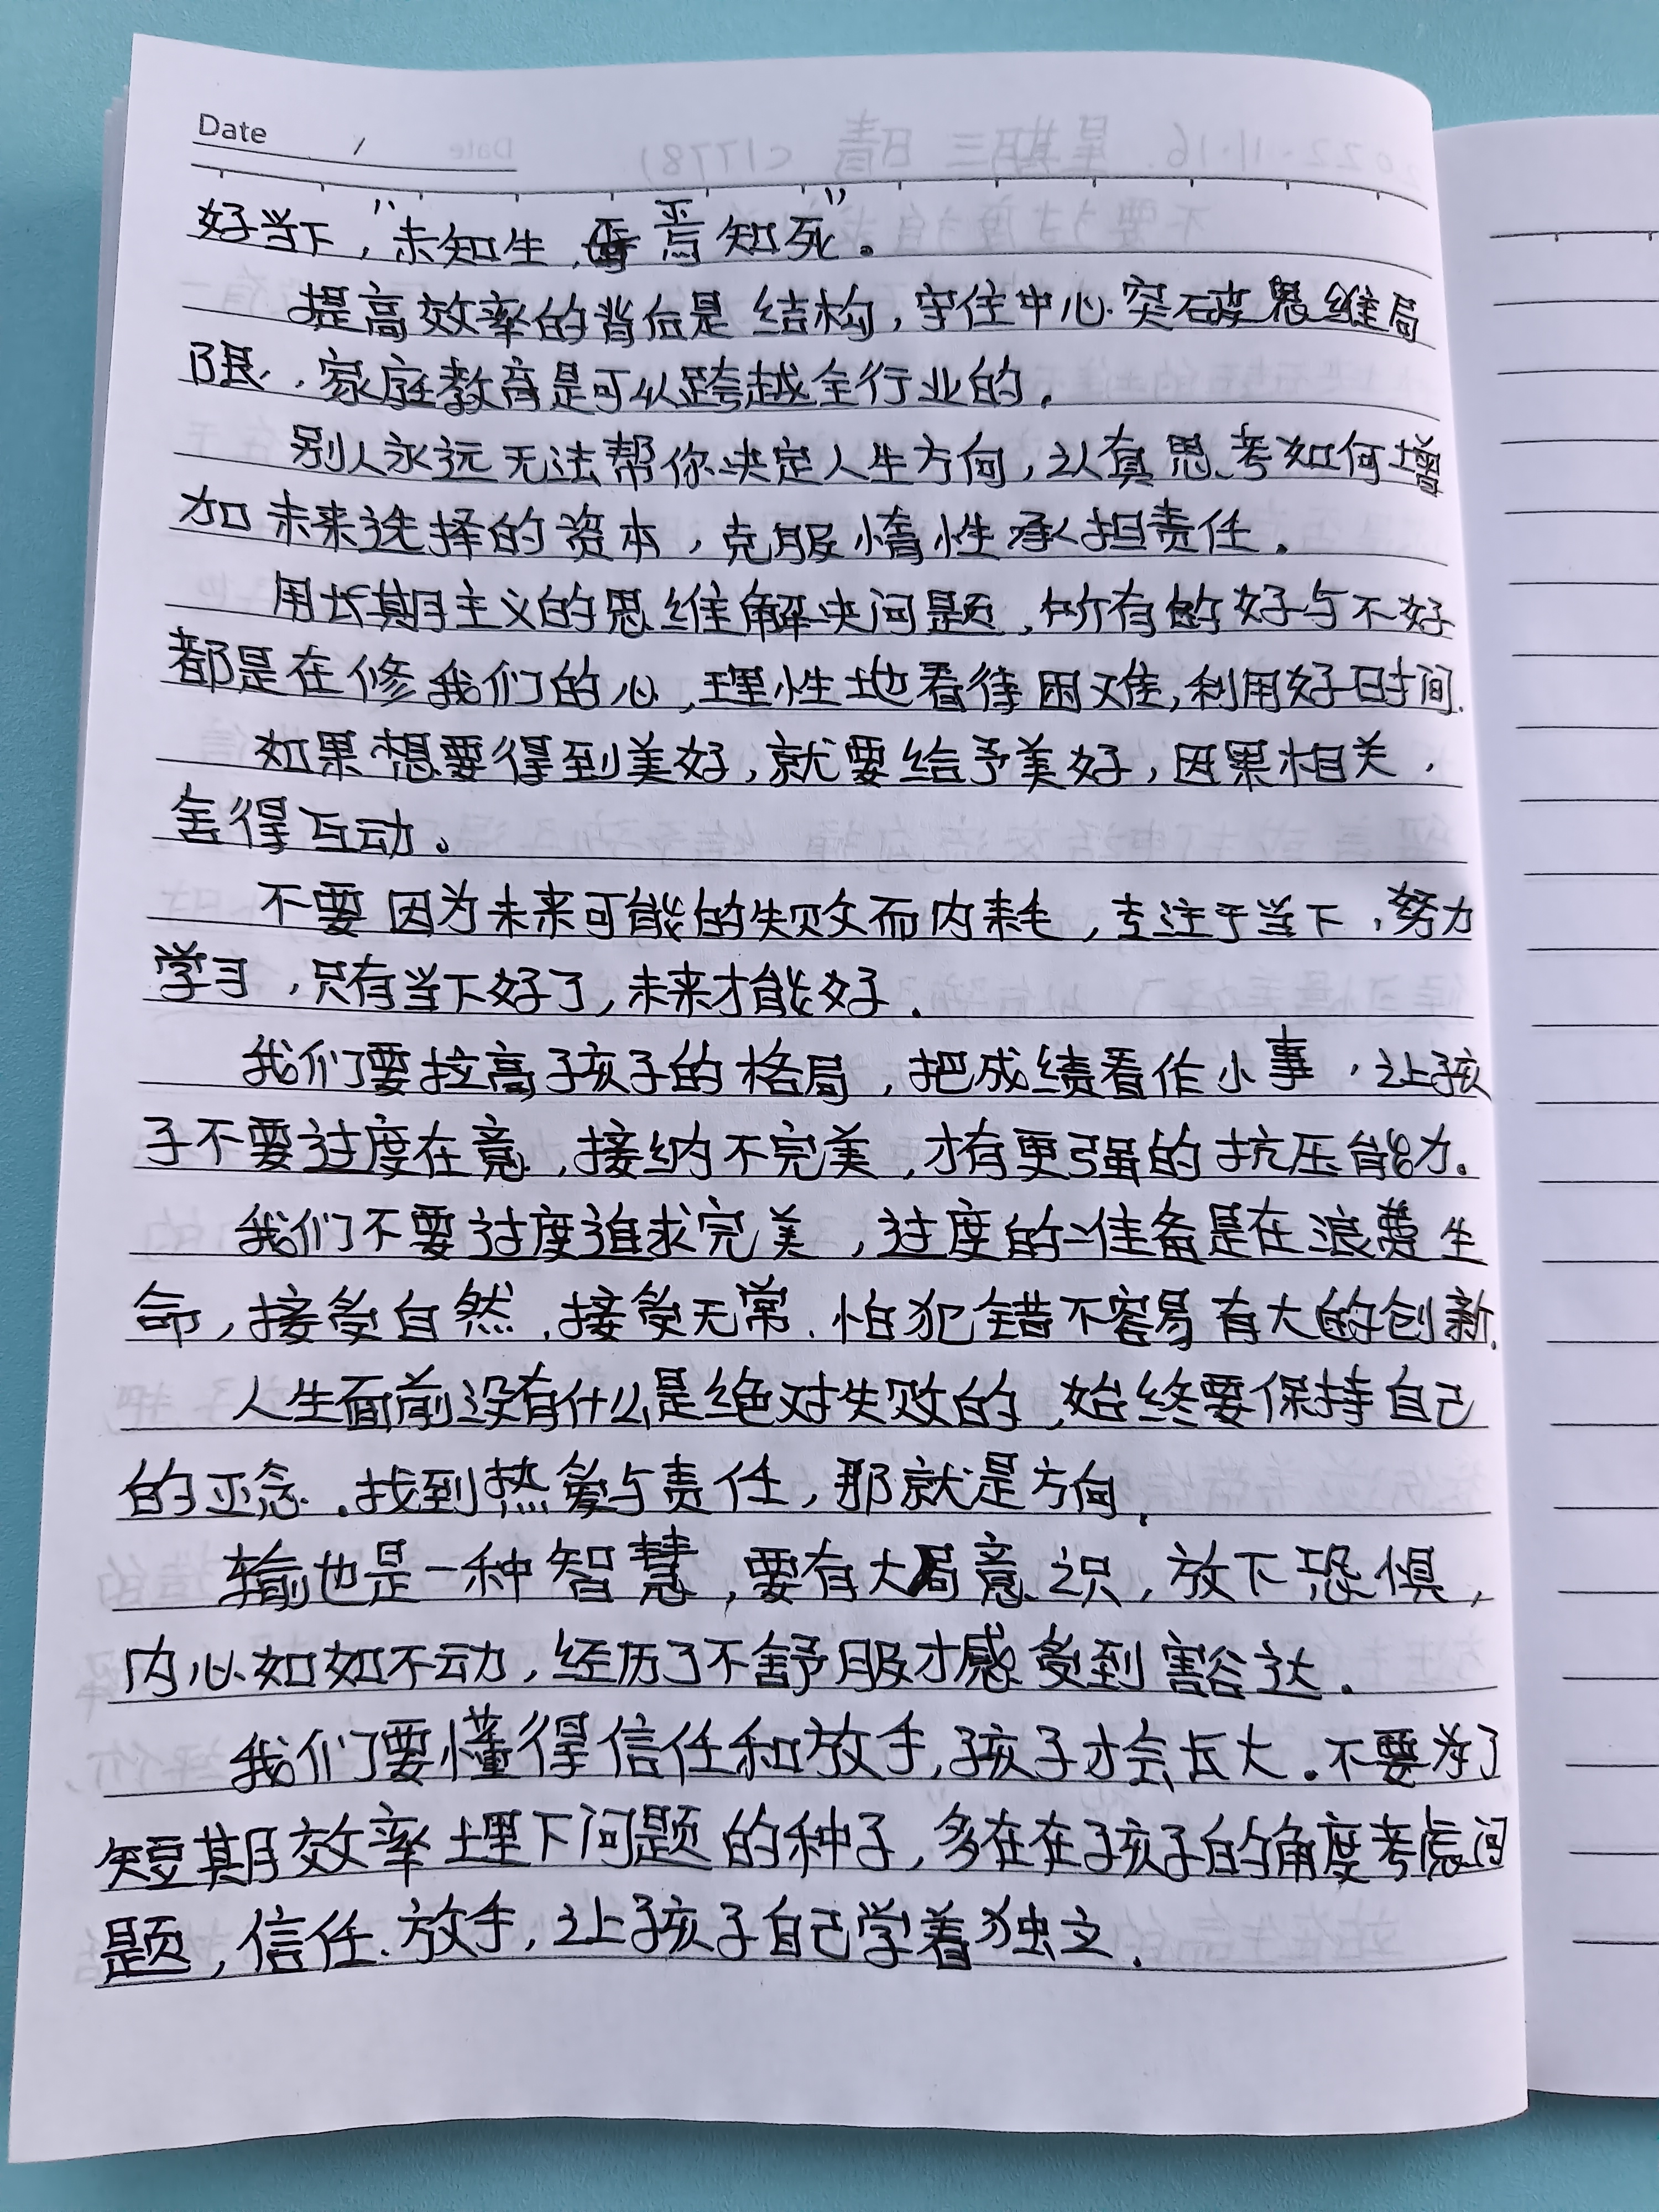 Date /
好当下，“未知生，焉知死”。
提高效率的背后是结构，守住中心.突破思维局
限，家庭教育是可以跨越全行业的.
别人永远无法帮你决定人生方向，认真思考如何增
加未来选择的资本，克服惰性承担责任.
用长期主义的思维解决问题，所有的好与不好
都是在修我们的心，理性地看待困难，利用好时间.
如果想要得到美好，就要给予美好，因果相关，
舍得互动。
不要因为未来可能的失败而内耗，专注于当下，努力
学习，只有当下好了，未来才能好.
我们要拉高孩子的格局，把成绩看作小事，让孩
子不要过度在意，接纳不完美，才有更强的抗压能力。
我们不要过度追求完美，过度的准备是在浪费生
命，接受自然，接受无常.怕犯错不容易有大的创新.
人生面前没有什么是绝对失败的，始终要保持自己
的正念.找到热爱与责任，那就是方向.
输也是一种智慧，要有大局意识，放下恐惧，
内心如如不动，经历了不舒服才感受到豁达.
我们要懂得信任和放手，孩子才会长大.不要为了
短期效率埋下问题的种子，多在在孩子的角度考虑问
题，信任.放手，让孩子自己学着独立.